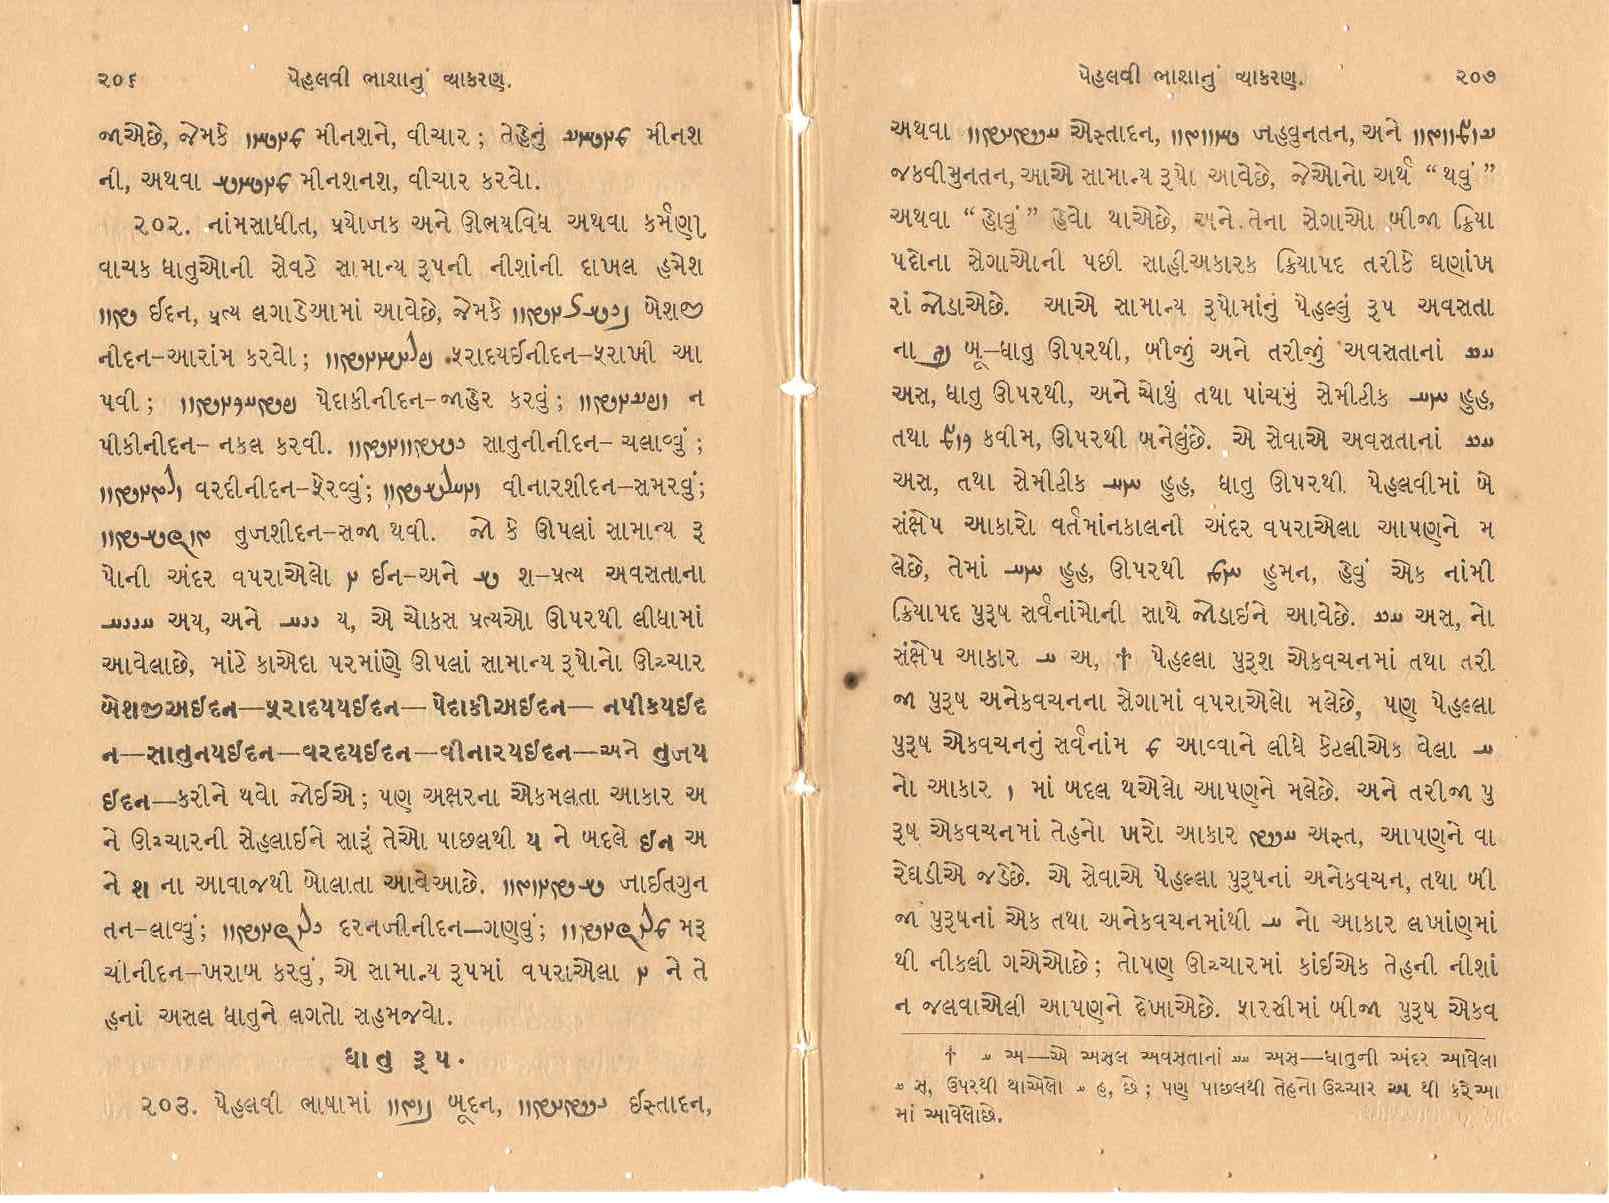 ૨૦૬ પેહલવી ભાશાનું વ્યાકરણ.
જાએછે, જેમકે મીનશને, વીચાર; તેહેનું મીનશ
ની, અથવા મીનશનશ, વીચાર કરવો.
૨૦૨. નાંમસાધીત, પ્રયોજક અને ઊભયવિધ અથવા કર્મણી
વાચક ધાતુઓની સેવટે સામાન્ય રૂપની નીશાંની દાખલ હમેશ
ઈદન, પ્રત્ય લગાડેઆમાં આવેછે, જેમકે ખેશજી
નીદન–આરાંમ કરવો; ફરાદયઈનીદન–ફરાખી આ
પવી; પેદાકીનીદન–જાહેર કરવું; ન
પીકીનીદન– નકલ કરવી. સાતુનીનીદન–ચલાવ્વું;
વરદીનીદન–ફેરવ્વું; વીનારશીદન–સમરવું;
તુજશીદન–સજા થવી. જો કે ઊપલાં સામાન્ય રૂ
પોની અંદર વપરાએલો ઈન–અને શ–પ્રત્ય અવસતાના
અય, અને ય, એ ચોકસ પ્રત્યઓ ઊપરથી લીધામાં
આવેલાછે, માંટે કાએદા પરમાંણે ઊપલાં સામાન્ય રૂપોનો ઊચ્ચાર
ખેશજીઅઈદન—ફરાદયયઈદન—પેદાકીઅઈદન— નપીકયઈદ
ન—સાતુનયઈદન—વરદયઈદન—વીનારયઈદન—અને તુજય
ઈદન—કરીને થવો જોઈએ; પણ અક્ષરના એકમલતા આકાર અ
ને ઊચ્ચારની સેહલાઈને સારૂં તેઓ પાછલથી ય ને બદલે ઈન અ
ને શ ના આવાજથી બોલાતા આવેઆછે. જાઈતગુન
તન–લાવ્વું; દરનજીનીદન–ગણવું; મરૂ
ચીનીદન–ખરાબ કરવું, એ સામાન્ય રૂપમાં વપરાએલા ને તે
હનાં અસલ ધાતુને લગતો સહમજવો.
ધાતુ રૂપ.
૨૦૩. પેહલવી ભાષામાં બૂદન, ઈસ્તાદન,
પેહલવી ભાશાનું વ્યાકરણ. ૨૦૭
અથવા એસ્તાદન, જહવુનતન, અને
જકવીમુનતન, આએ સામાન્ય રૂપો આવેછે, જેઓનો અર્થ “થવું”
અથવા “હોવું” હેવો થાએછે, અને તેના સેગાઓ બીજા ક્રિયા
પદોના સેગાઓની પછી સાહીઅકારક ક્રિયાપદ તરીકે ઘણાંખ
રાં જોડાએછે. આએ સામાન્ય રૂપોમાંનું પેહલ્લું રૂપ અવસતા
ના બૂ–ધાતુ ઊપરથી, બીજું અને તરીજું અવસતાનાં
અસ, ધાતુ ઊપરથી, અને ચોથું તથા પાંચમું સેમીટીક હુહ,
તથા કવીમ, ઊપરથી બનેલુંછે. એ સેવાએ અવસતાનાં
અસ, તથા સેમીટીક હુહ, ધાતુ ઊપરથી પેહલવીમાં બે
સંક્ષેપ આકારો વર્તમાંનકાલની અંદર વપરાએલા આપણને મ
લેછે, તેમાં હુહ, ઊપરથી હુમન, હેવું એક નાંમી
ક્રિયાપદ પુરૂષ સર્વનાંમોની સાથે જોડાઈને આવેછે. અસ, નો
સંક્ષેપ આકાર અ, † પેહલ્લા પુરૂશ એકવચનમાં તથા તરી
જા પુરૂષ અનેકવચનના સેગામાં વપરાએલો મલેછે, પણ પેહલ્લા
પુરૂષ એકવચનનું સર્વનાંમ આવ્વાને લીધે કેટલીએક વેલા
નો આકાર માં બદલ થએલો આપણને મલેછે. અને તરીજા પુ
રૂષ એકવચનમાં તેહનો ખરો આકાર અસ્ત, આપણને વા
રેઘડીએ જડેછે. એ સેવાએ પેહલ્લા પુરૂષનાં અનેકવચન, તથા બી
જા પુરૂષનાં એક તથા અનેકવચનમાંથી નો આકાર લખાંણમાં
થી નીકલી ગએઓછે; તોપણ ઊચ્ચારમાં કાંઈએક તેહની નીશાં
ન જલવાએલી આપણને દેખાએછે. ફારસીમાં બીજા પુરૂષ એકવ
† અ—એ અસલ અવસતાનાં અસ—ધાતુની અંદર આવેલા
સ, ઉપરથી થાએલો હ, છે; પણ પાછલથી તેહનો ઉચ્ચાર અ થી કરેઆ
માં આવેલોછે.